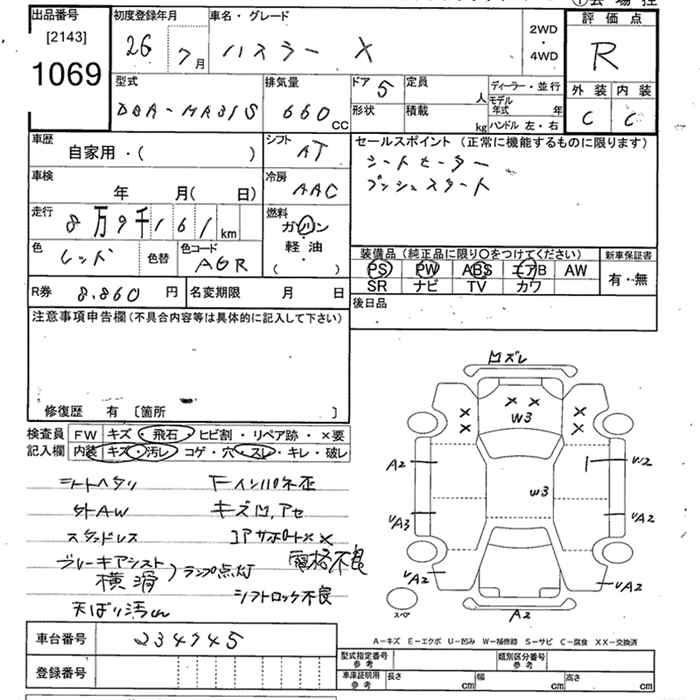 出品番号
[2143]
1069
初度登録年月
26 7月
車名・グレード
ハスラー X
2WD
・
4WD
評価点
R
外装 内装
C C
型式
DBA-MR31S
排気量
660 CC
ドア 5
定員
人
形状
積載
kg
ディーラー・並行
モデル年式 年
ハンドル 左・右
車歴
自家用・( )
シフト
AT
セールスポイント (正常に機能するものに限ります)
シートヒーター
プッシュスタート
車検
年 月( 日)
冷房
AAC
走行
8万9千161km
燃料
ガソリン
軽油
( )
色
レッド
色替
色コード
装備品 (純正品に限り○をつけてください)
新車保証書
PS PW ABS エアB AW
有・無
SR ナビ TV カワ
R券 8,860 円
名変期限 月 日
後日品
注意事項申告欄 (不具合内容等は具体的に記入して下さい)
修復歴 有 〔箇所 〕
検査員記入欄
FW キズ・飛石・ヒビ割・リペア跡・×要
内装 キズ・汚レ・コゲ・穴・スレ・キレ・破レ
シートヘタリ
外AW
スタッドレス
ブレーキアシスト
横滑
)ランプ点灯
天ばり汚れ
Fインパネ歪
キズ凹,アセ
コアサポート××
骨格不良
シフトロック不良
凹ズレ
× × × ×
× ×
W3
A2
W2
W3
UA3
UA2
UA2
UA2
スペア
A2
A-キズ E-エクボ U-凹み W-補修跡 S-サビ C-腐食 XX-交換済
車台番号 234745
登録番号
型式指定番号 参考
類別区分番号 参考
車庫証明用 参考
長さ cm
幅 cm
高さ cm